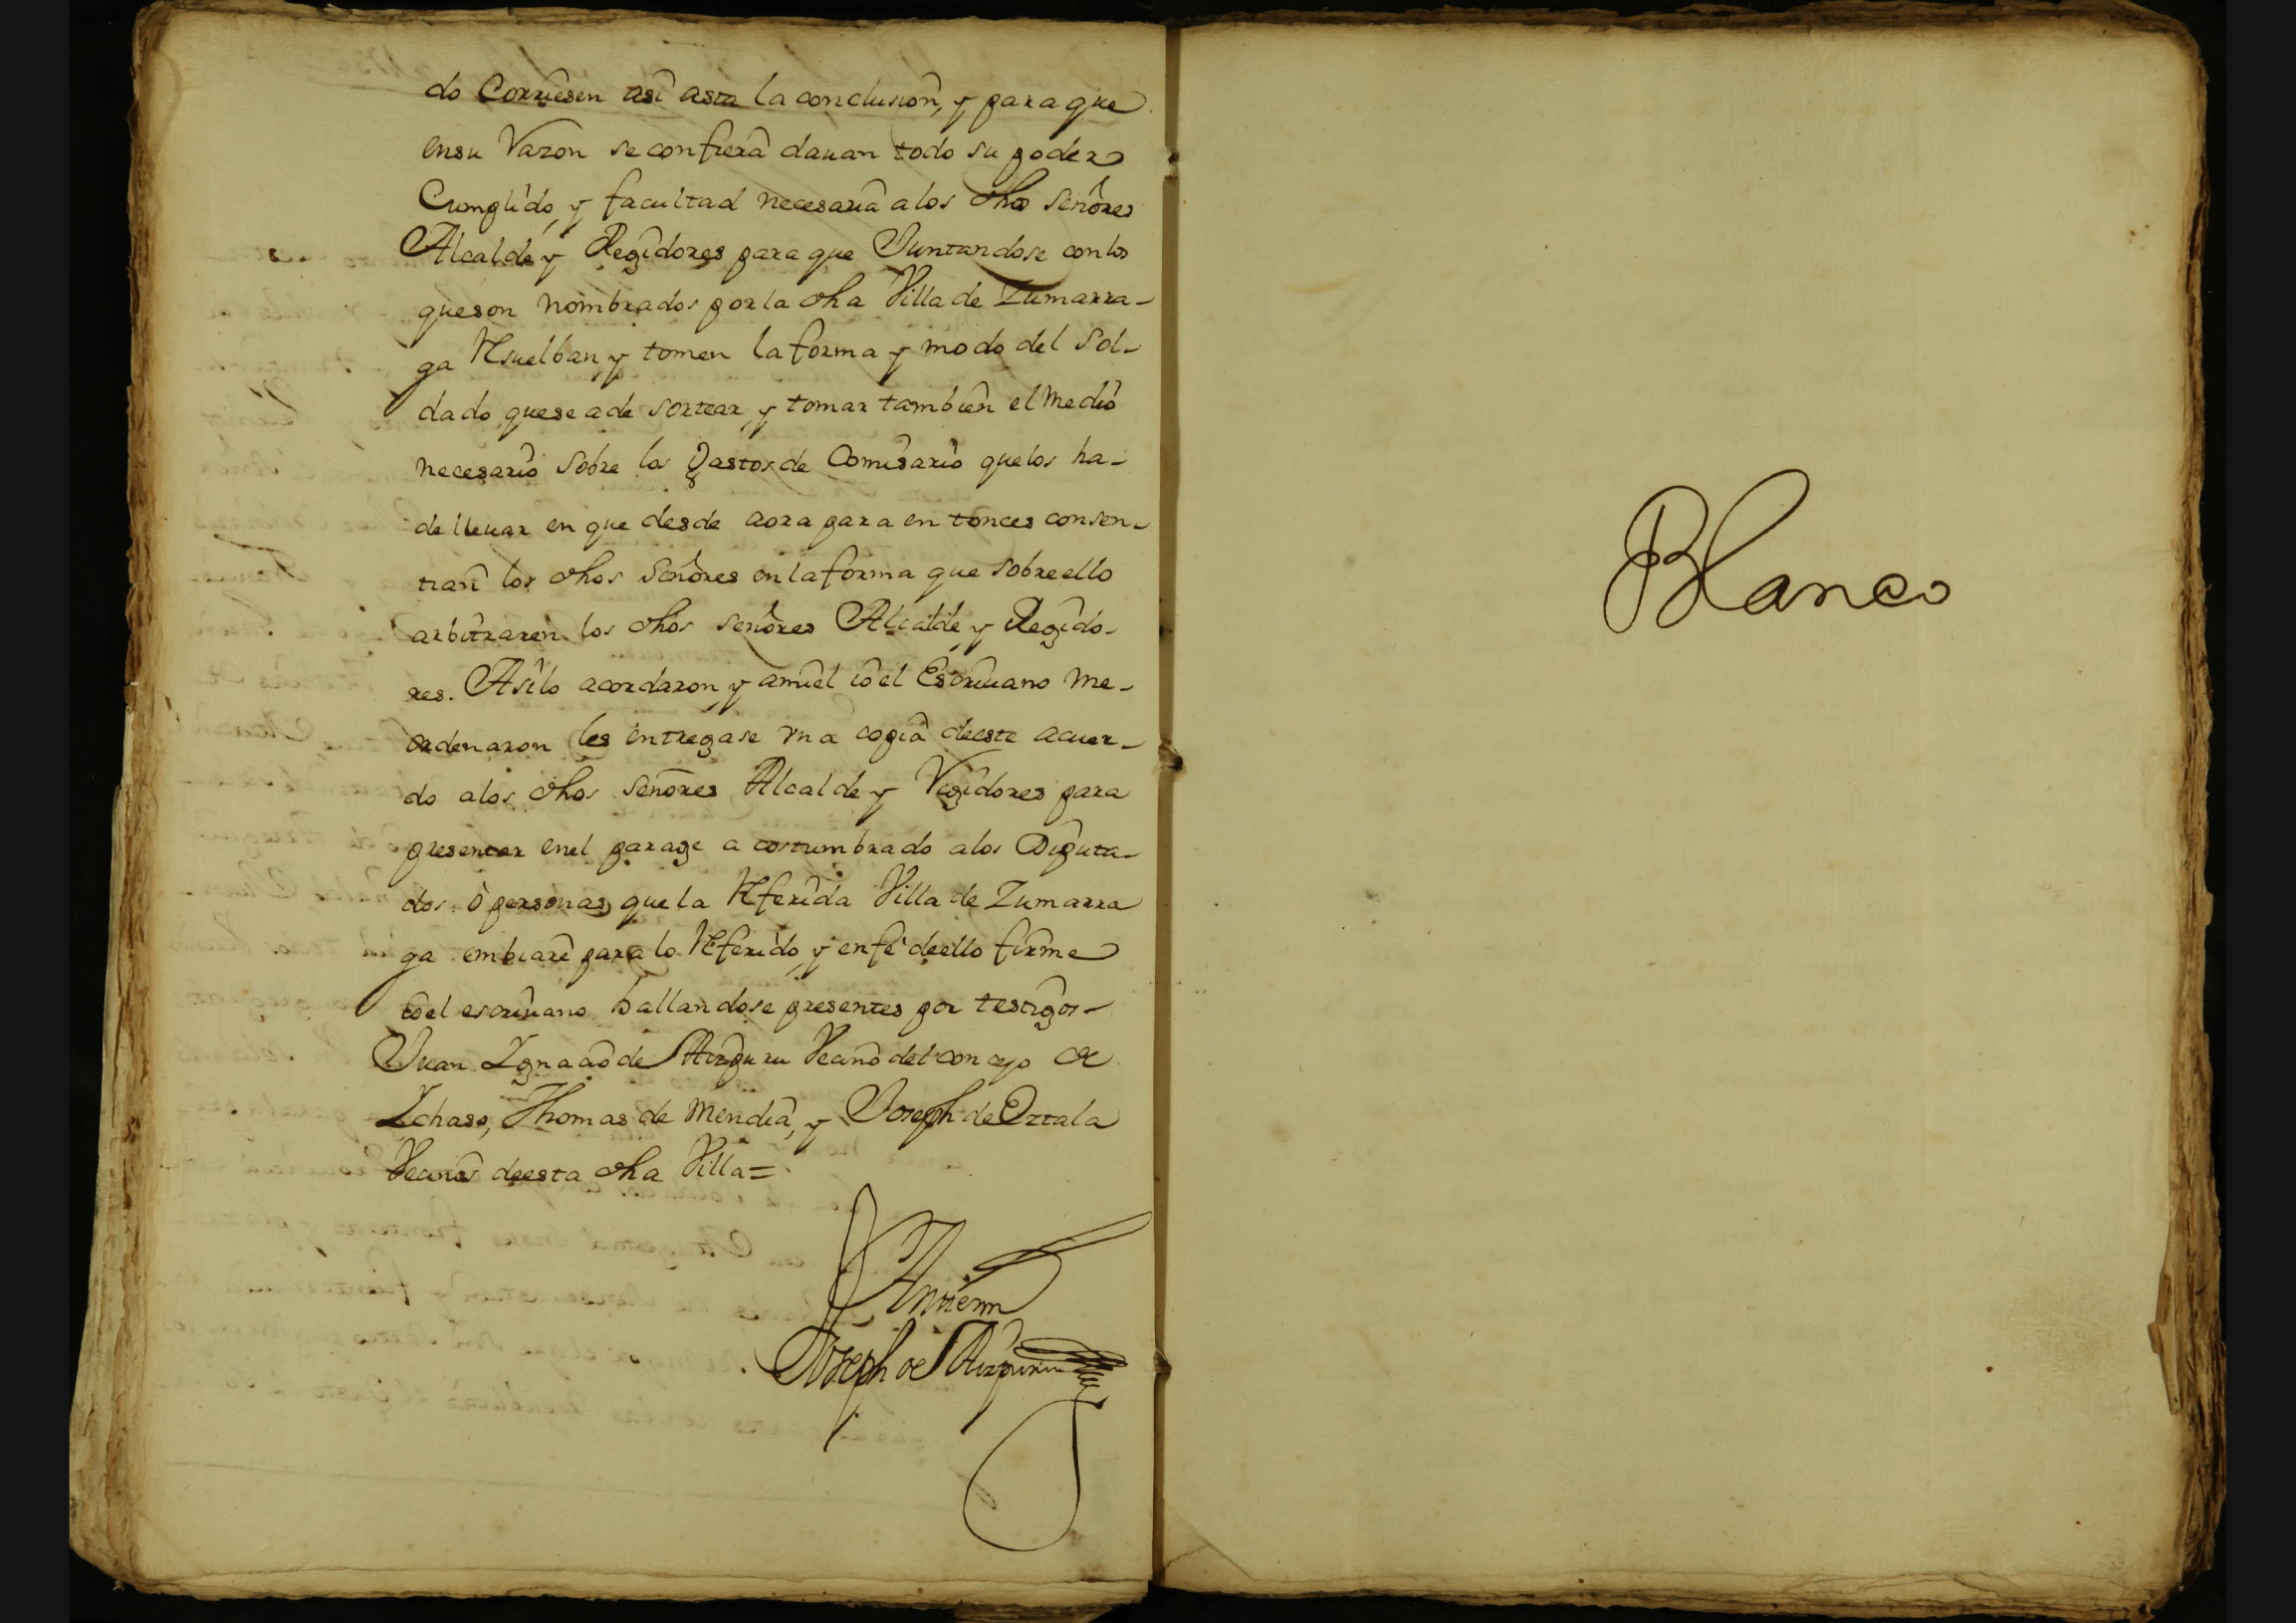 do Corriesen asi asta la conclusion, y para que
ensu Razon se confiera dauan todo su poder
Cumplido, y facultad necesaria a los dhos señores
Alcalde y Regidores para que Juntandose con los
que son nombrados por la dha Villa de Zumarra-
ga Resuelban, y tomen la forma y modo del Sol-
dado que se a de sortear, y tomar tambien el medio
necesario sobre los gastos de Comisario que los ha-
de lleuar en que desde aora para en tonces consen-
tian los dhos Señores en la forma que sobre ello
arbitraren los dhos señores Alcalde y Regido-
res. Asilo acordaron, y amiel Io el Escriuano me-
ordenaron les entregase vna copia deeste acuer-
do a los dhos señores Alcalde y Regidores para
presentar enel parage a costumbrado a los Diputa-
dos ò personas que la Referida Villa de Zumarra
ga embiare para lo Referido, y en fe deello firme
Io el escriuano hallandose presentes por testigos-
Juan Ignacio de Aizpuru Vecino del concejo de
Ichaso, Thomas de Mendia, y Joseph de Oztala
Vecinos deesta dha Villa=
Antemi
Joseph de Aizpuru
Blanco